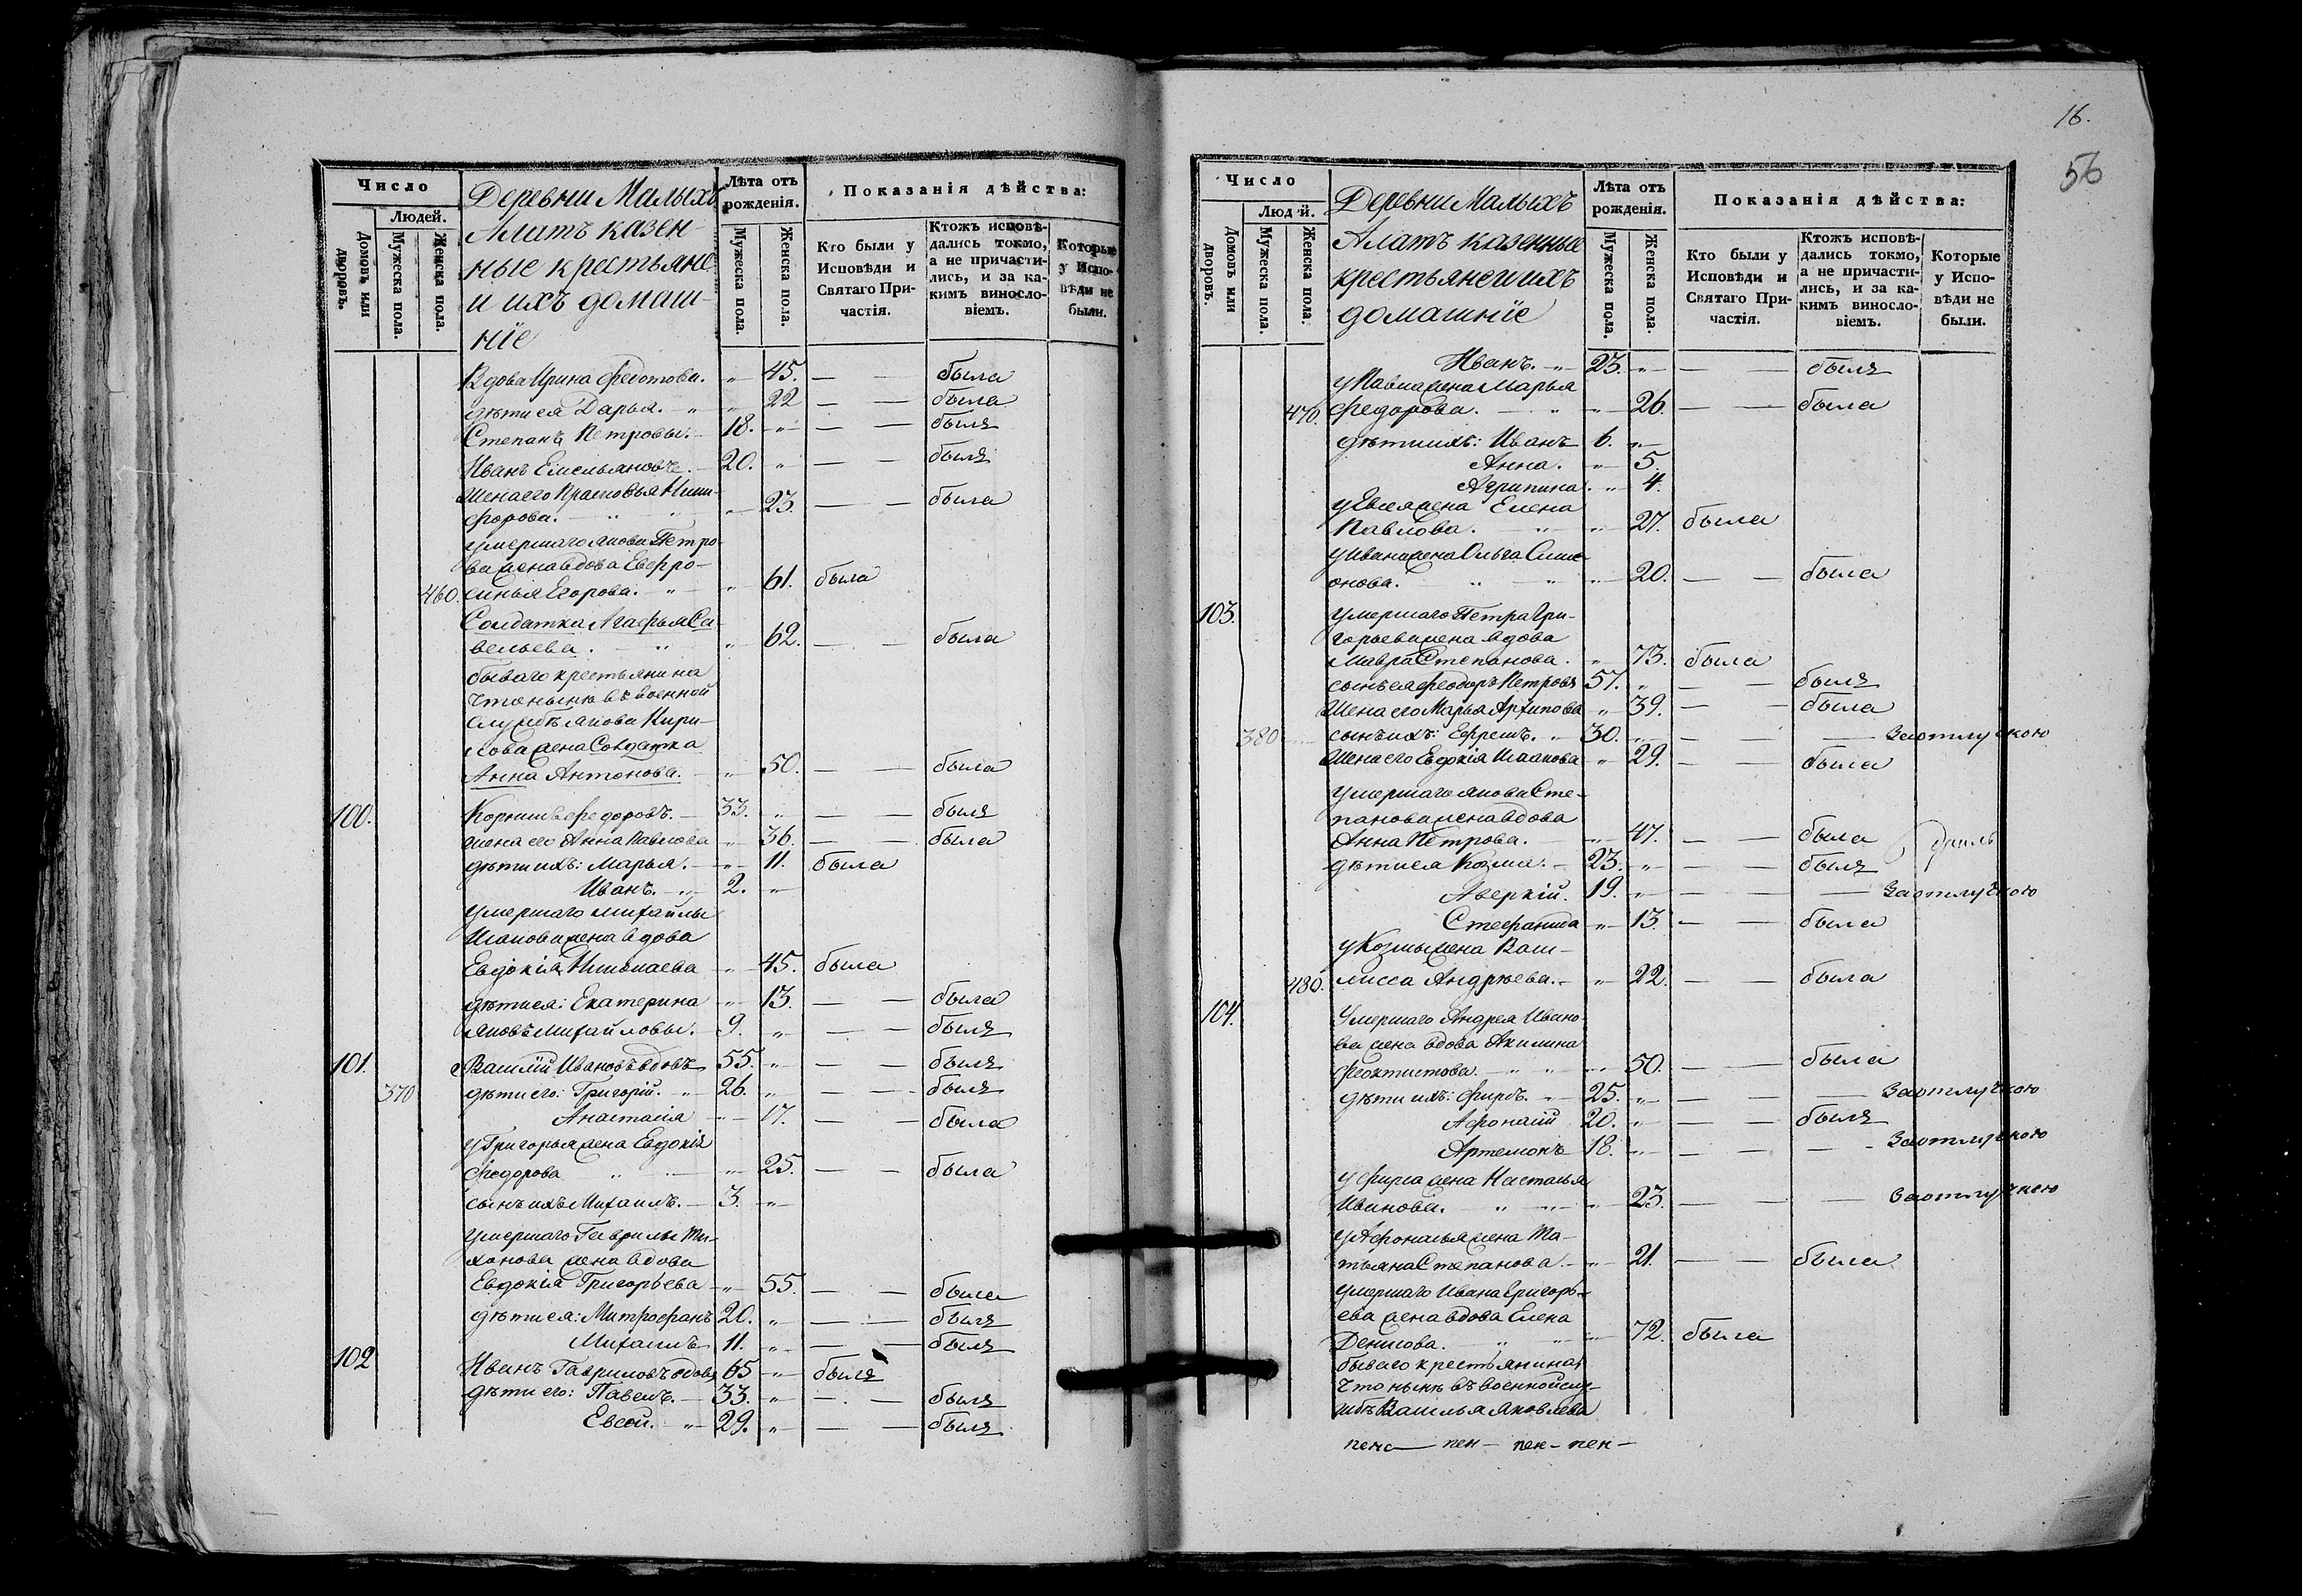 Число
Людей.
Домовъ или дворовъ.
Мужеска пола.
Женска пола.
Деревни Малыхъ
Алатъ казен-
ные крестьяне
и ихъ домаш-
ніе
Лѣта отъ рожденія.
Мужеска пола.
Женска пола.
Показанія дѣйства:
Кто были у Исповѣди и Святаго Причастія.
Ктожъ исповѣ-
дались токмо,
а не причасти-
лись, и за ка-
кимъ виносло-
віемъ.
Которые
у Испо-
вѣди не
были.
Вдова Ирина Федотова. " 45. — — была
дѣти ея Дарья. " " 22 — — была
Степанъ Петровы. 18. " — — былъ
Иванъ Емельяновъ. 20. " — — былъ
Жена его Прасковья Ники-
форова. " 23. — — была
умершаго Якова Петро-
ва жена вдова Евфро-
460. синья Егорова. " " 61. была
Солдатка Агафья Са-
вельева. " " 62. — — была
бываго крестьянина
что нынѣ въ военной
службѣ Якова Кири-
лова жена Солдатка
Анна Антонова. " 50. — — была
100. Корнилъ Федоровъ. 33. " — — былъ
жена его Анна Павлова " 36. — — была
дѣти ихъ: Марья. " 11. была
Иванъ. " 2. "
Умершаго Михайлы
жена вдова
Евдокія Николаева " 45. была
дѣти ея: Екатерина " 13. — — была
Яковъ Михайловы. 9. " — — былъ
101. Василій Ивановъ вдовъ 55. " — — былъ
370 дѣти его: Григорій. " 26. " — — былъ
Анастасія " 17. — — была
у Григорья жена Евдокія
Федорова " " 25. — — была
сынъ ихъ Михаилъ. 3. "
умершаго Гаврилы Ти-
хонова жена вдова
Евдокія Григорьева " 55. — — была
дѣти ея: Митрофанъ 20. " — — былъ
Михаилъ 11. " — — былъ
102 Иванъ Гавриловъ вдовъ 65 " былъ
дѣти его: Павелъ. 33. " — — былъ
Евсей. " 29. " — — былъ
16.
56
Число
Людей.
Домовъ или дворовъ.
Мужеска пола.
Женска пола.
Деревни Малыхъ
Алатъ казенные
крестьяне и ихъ
домашніе
Лѣта отъ рожденія.
Мужеска пола.
Женска пола.
Показанія дѣйства:
Кто были у Исповѣди и Святаго Причастія.
Ктожъ исповѣ-
дались токмо,
а не причасти-
лись, и за ка-
кимъ виносло-
віемъ.
Которые
у Испо-
вѣди не
были.
Иванъ. " 23. " — — былъ
у Павла жена Марья
470. Федорова. " " 26. — — была
дѣти ихъ: Иванъ 6. "
Анна. " 5.
Агрипина. " 4.
у Евсея жена Елена
Павлова. " " 27. была
у Ивана жена Ольга Сими-
онова. " " 20. — — была
103. умершаго Петра Гри-
горьева жена вдова
Мавра Степанова. " 73. была
сынъ ея Феодоръ Петровъ 57. " — — былъ
Жена его Марья Архипова " 39. — — была
380 сынъ ихъ: Ефремъ. " 30. " — — — За отлучкою
Жена его Евдокія " 29. — — была
умершаго Якова Сте-
панова жена вдова
Анна Петрова. " 47. — — была
дѣти ея Козма. 23. " — — былъ
Аверкій. 19. " — — — За отлучкою
Стефанида " 13. — — была
у Козмы жена Васи-
480. лисса Андрѣева. " 22. — — была
104. Умершаго Андрея Ивано-
ва жена вдова Акилина
Феоктистова. " " 50. — — была
дѣти ихъ: Фирсъ. " 25. " — — — За отлучкою
Афонасій 20. " — — былъ
Артемонъ 18. " — — — За отлучкою
у Фирса жена Настасья
Иванова. " " 23. — — — За отлучкою
у Афонасья жена Та-
тьяна Степанова. " 21. — — была
умершаго Ивана Григорь-
ева жена вдова Елена
Денисова. " " 72. была
бываго крестьянина
что нынѣ въ военной слу-
жбѣ Василья Яковлева